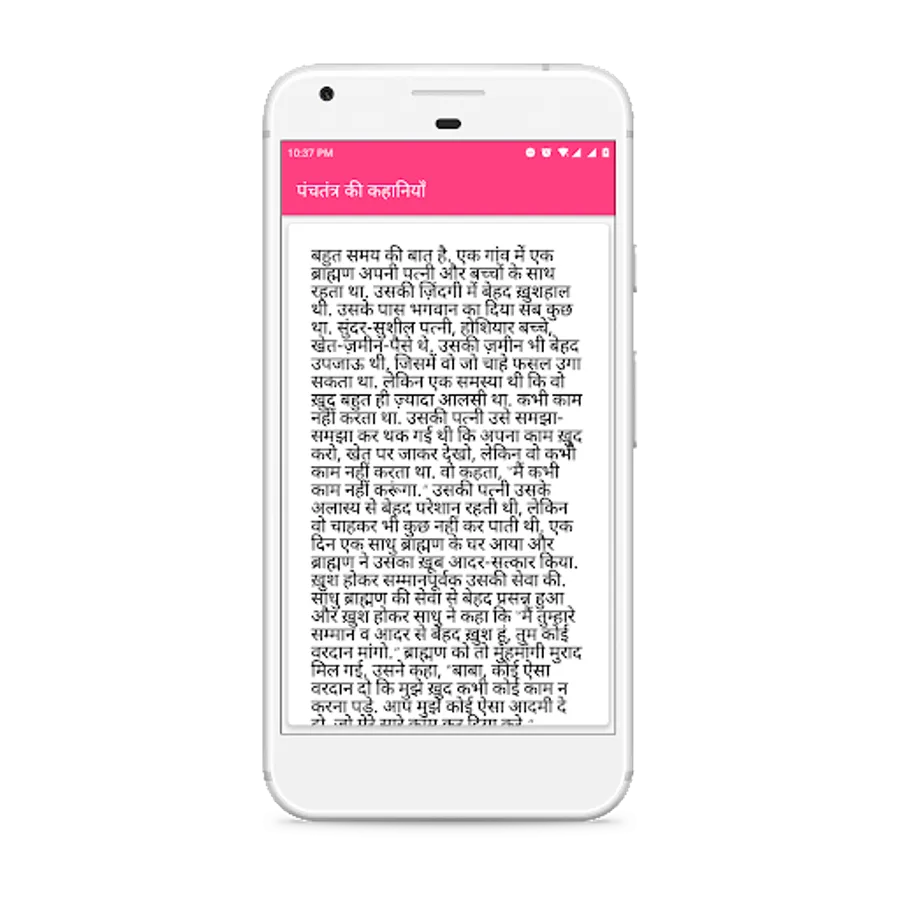 10:37 PM
पंचतंत्र की कहानियाँ
बहुत समय की बात है, एक गांव में एक
ब्राह्मण अपनी पत्नी और बच्चों के साथ
रहता था. उसकी ज़िंदगी में बेहद ख़ुशहाल
थी. उसके पास भगवान का दिया सब कुछ
था. सुंदर-सुशील पत्नी, होशियार बच्चे,
खेत-ज़मीन-पैसे थे. उसकी ज़मीन भी बेहद
उपजाऊ थी, जिसमें वो जो चाहे फसल उगा
सकता था. लेकिन एक समस्या थी कि वो
ख़ुद बहुत ही ज़्यादा आलसी था. कभी काम
नहीं करता था. उसकी पत्नी उसे समझा-
समझा कर थक गई थी कि अपना काम ख़ुद
करो, खेत पर जाकर देखो, लेकिन वो कभी
काम नहीं करता था. वो कहता, "मैं कभी
काम नहीं करूंगा." उसकी पत्नी उसके
अलास्य से बेहद परेशान रहती थी, लेकिन
वो चाहकर भी कुछ नहीं कर पाती थी. एक
दिन एक साधु ब्राह्मण के घर आया और
ब्राह्मण ने उसका ख़ूब आदर-सत्कार किया.
ख़ुश होकर सम्मानपूर्वक उसकी सेवा की.
साधु ब्राह्मण की सेवा से बेहद प्रसन्न हुआ
और ख़ुश होकर साधु ने कहा कि "मैं तुम्हारे
सम्मान व आदर से बेहद ख़ुश हूं, तुम कोई
वरदान मांगो." ब्राह्मण को तो मुंहमांगी मुराद
मिल गई. उसने कहा, "बाबा, कोई ऐसा
वरदान दो कि मुझे ख़ुद कभी कोई काम न
करना पड़े. आप मुझे कोई ऐसा आदमी दे
दो, जो मेरे सारे काम कर दिया करे."